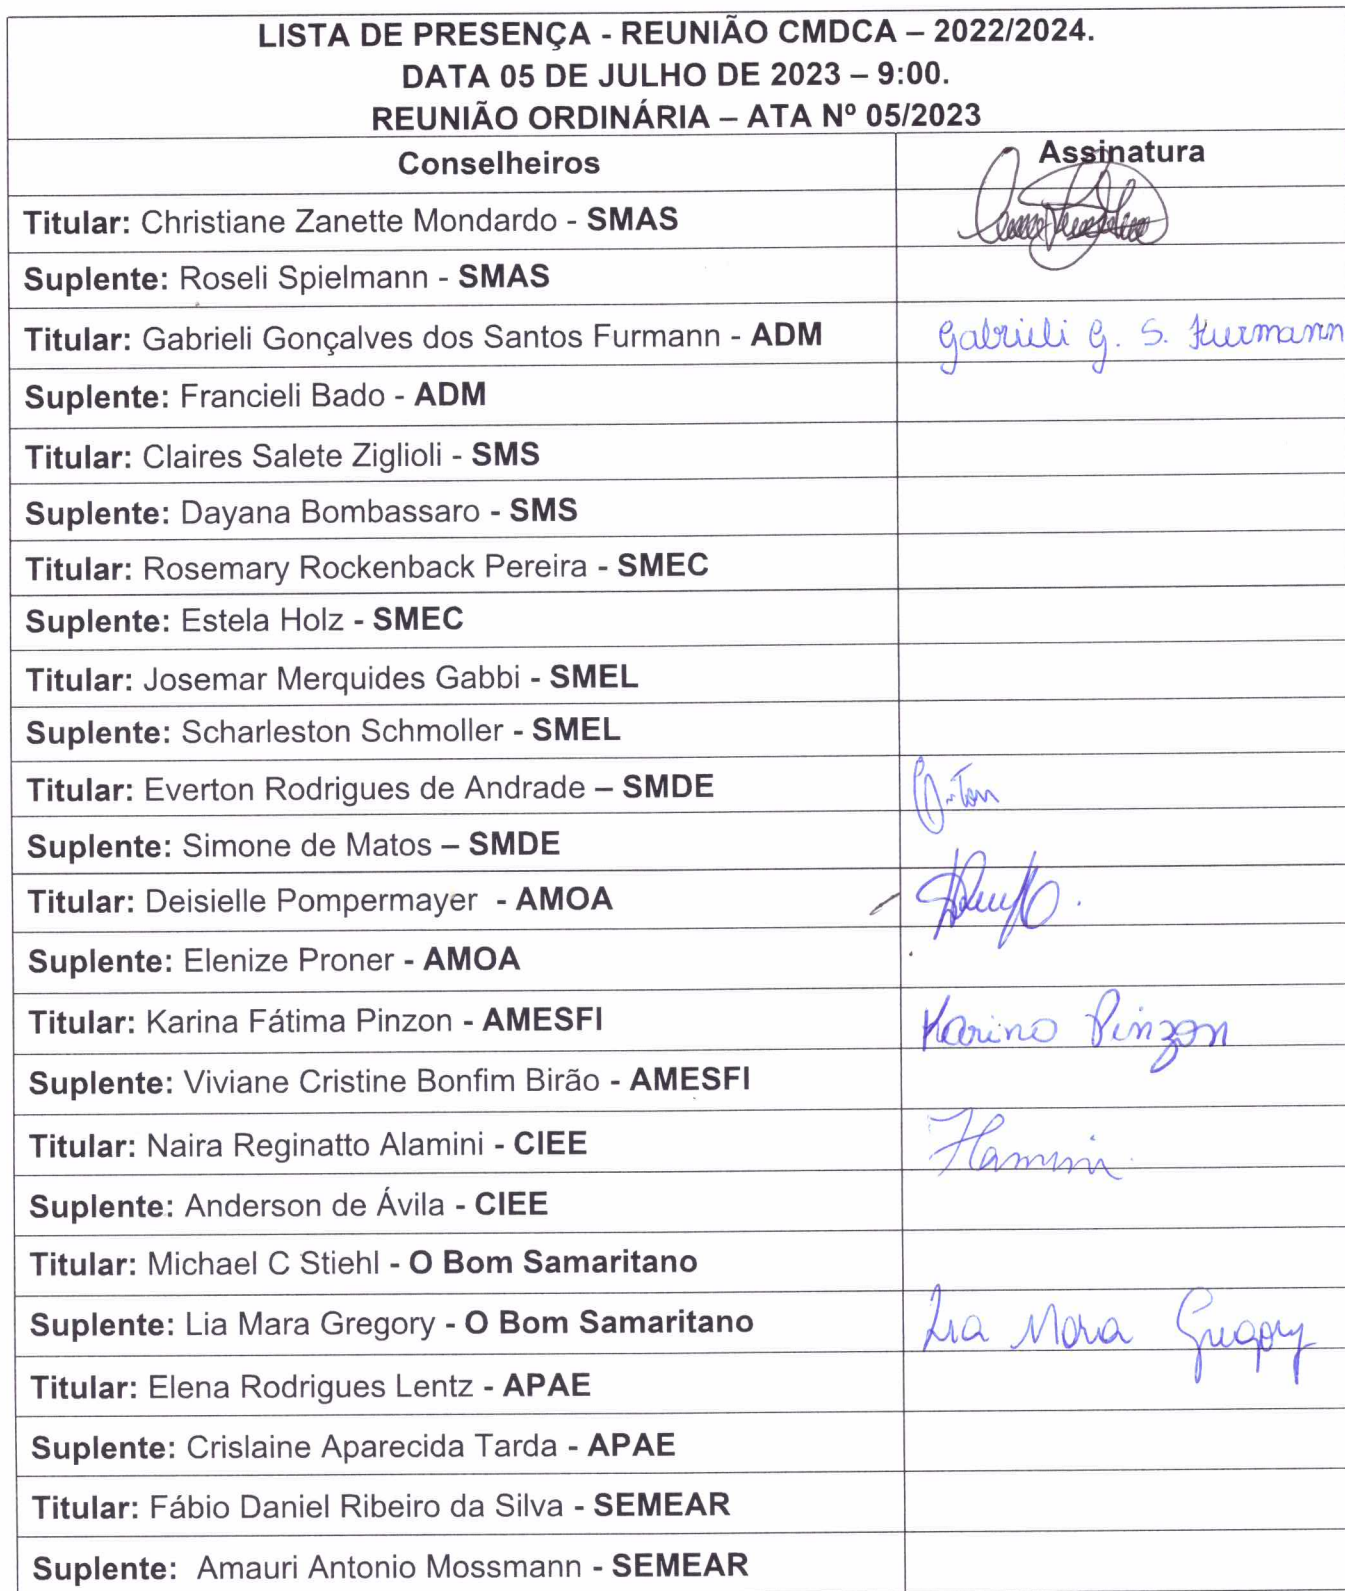 LISTA DE PRESENÇA - REUNIÃO CMDCA – 2022/2024.
DATA 05 DE JULHO DE 2023 – 9:00.
REUNIÃO ORDINÁRIA – ATA Nº 05/2023
Conselheiros Assinatura
Titular: Christiane Zanette Mondardo - SMAS
Suplente: Roseli Spielmann - SMAS
Titular: Gabrieli Gonçalves dos Santos Furmann - ADM Gabrieli G. S. Furmann
Suplente: Francieli Bado - ADM
Titular: Claires Salete Ziglioli - SMS
Suplente: Dayana Bombassaro - SMS
Titular: Rosemary Rockenback Pereira - SMEC
Suplente: Estela Holz - SMEC
Titular: Josemar Merquides Gabbi - SMEL
Suplente: Scharleston Schmoller - SMEL
Titular: Everton Rodrigues de Andrade – SMDE
Suplente: Simone de Matos – SMDE
Titular: Deisielle Pompermayer - AMOA
Suplente: Elenize Proner - AMOA
Titular: Karina Fátima Pinzon - AMESFI Karina Pinzon
Suplente: Viviane Cristine Bonfim Birão - AMESFI
Titular: Naira Reginatto Alamini - CIEE
Suplente: Anderson de Ávila - CIEE
Titular: Michael C Stiehl - O Bom Samaritano
Suplente: Lia Mara Gregory - O Bom Samaritano Lia Mara Gregory
Titular: Elena Rodrigues Lentz - APAE
Suplente: Crislaine Aparecida Tarda - APAE
Titular: Fábio Daniel Ribeiro da Silva - SEMEAR
Suplente: Amauri Antonio Mossmann - SEMEAR